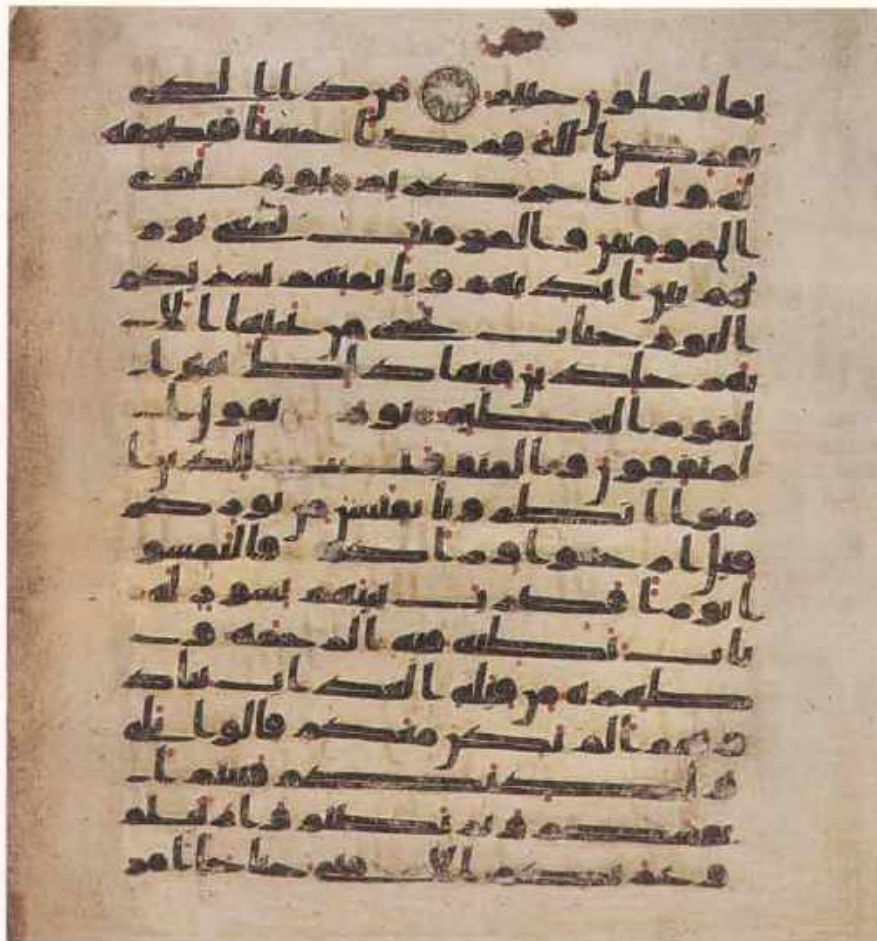 بما تعملون خبير من ذا الذى
يقرض الله قرضا حسنا فيضعفه
له وله اجر كريم يوم ترى
المومنين والمومنت يسعى نور
هم بين ايديهم وبايمنهم بشريكم
اليوم جنات تجرى من تحتها الا
نهر خلدين فيها ذلك هو ا
لفوز العظيم يوم يقول ا
لمنفقون والمنفقت للذين ا
منوا انظرونا نقتبس من نوركم
قيل ارجعوا وراكم فالتمسو
ا نورا فضرب بينهم بسور له
باب باطنه فيه الرحمة و
ظهره من قبله العذاب يناد
ونهم الم نكن معكم قالوا بلى
ولكنكم فتنتم ا
نفسكم وتربصتم وارتبتم
وغرتكم الامانى حتى جا امر